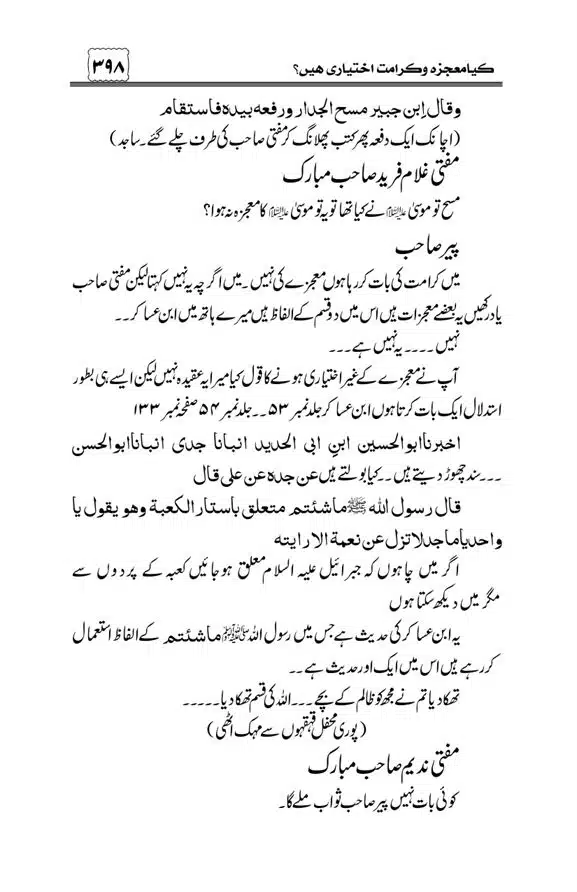 کیا معجزہ و کرامت اختیاری ھیں؟ ۳۹۸
وقال اِبن جبیر مسح الجدار ورفعه بیده فاستقام
(اچانک ایک دفعہ پھر کتب پھلانگ کر مفتی صاحب کی طرف چلے گئے۔ساجد)
مفتی غلام فرید صاحب مبارک
مسح تو موسیٰ علیہ السلام نے کیا تھا تو یہ تو موسیٰ علیہ السلام کا معجزہ نہ ہوا؟
پیر صاحب
میں کرامت کی بات کر رہا ہوں معجزے کی نہیں۔میں اگرچہ یہ نہیں کہتا لیکن مفتی صاحب
یاد رکھیں یہ بعضے معجزات ہیں اس میں دو قسم کے الفاظ ہیں میرے ہاتھ میں ابن عساکر۔۔
نہیں۔۔۔۔یہ نہیں ہے۔۔۔
آپ نے معجزے کے غیر اختیاری ہونے کا قول کیا میرا یہ عقیدہ نہیں لیکن ایسے ہی بطور
استدلال ایک بات کرتا ہوں ابن عساکر جلد نمبر ۵۳۔۔جلد نمبر ۵۴ صفحہ نمبر ۱۳۳
اخبرنا ابو الحسین ابنِ ابی الحدید انبانا جدی انبانا ابو الحسن
۔۔۔سند چھوڑ دیتے ہیں۔۔کیا بولتے ہیں عن جده عن علی قال
قال رسول الله ﷺ ماشئتم متعلق باستار الکعبة وهو یقول یا
واحد یا ماجد لا تزل عن نعمة الا رایته
اگر میں چاہوں کہ جبرائیل علیہ السلام معلق ہو جائیں کعبہ کے پردوں سے
مگر میں دیکھ سکتا ہوں
یہ ابن عساکر کی حدیث ہے جس میں رسول اللہ ﷺ ماشئتم کے الفاظ استعمال
کر رہے ہیں اس میں ایک اور حدیث ہے۔۔
تھکا دیا تم نے مجھ کو ظالم کے بچے۔۔۔اللہ کی قسم تھکا دیا۔۔۔۔۔
(پوری محفل قہقہوں سے مہک اٹھی)
مفتی ندیم صاحب مبارک
کوئی بات نہیں پیر صاحب ثواب ملے گا۔